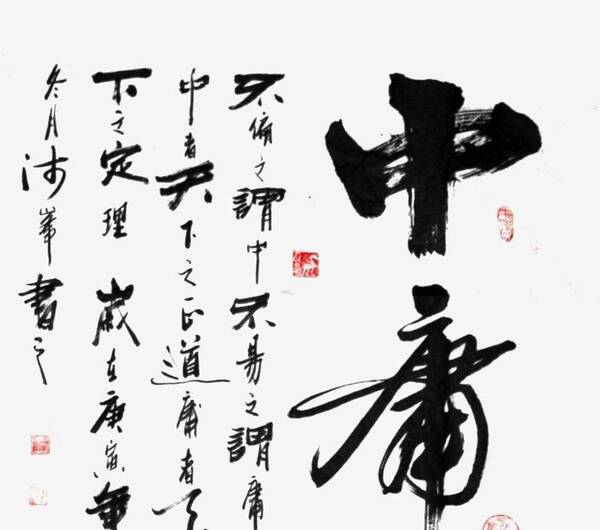 中庸
不偏之謂中不易之謂庸
中者天下之正道庸者天
下之定理歲在庚寅年
冬月沛峯書之